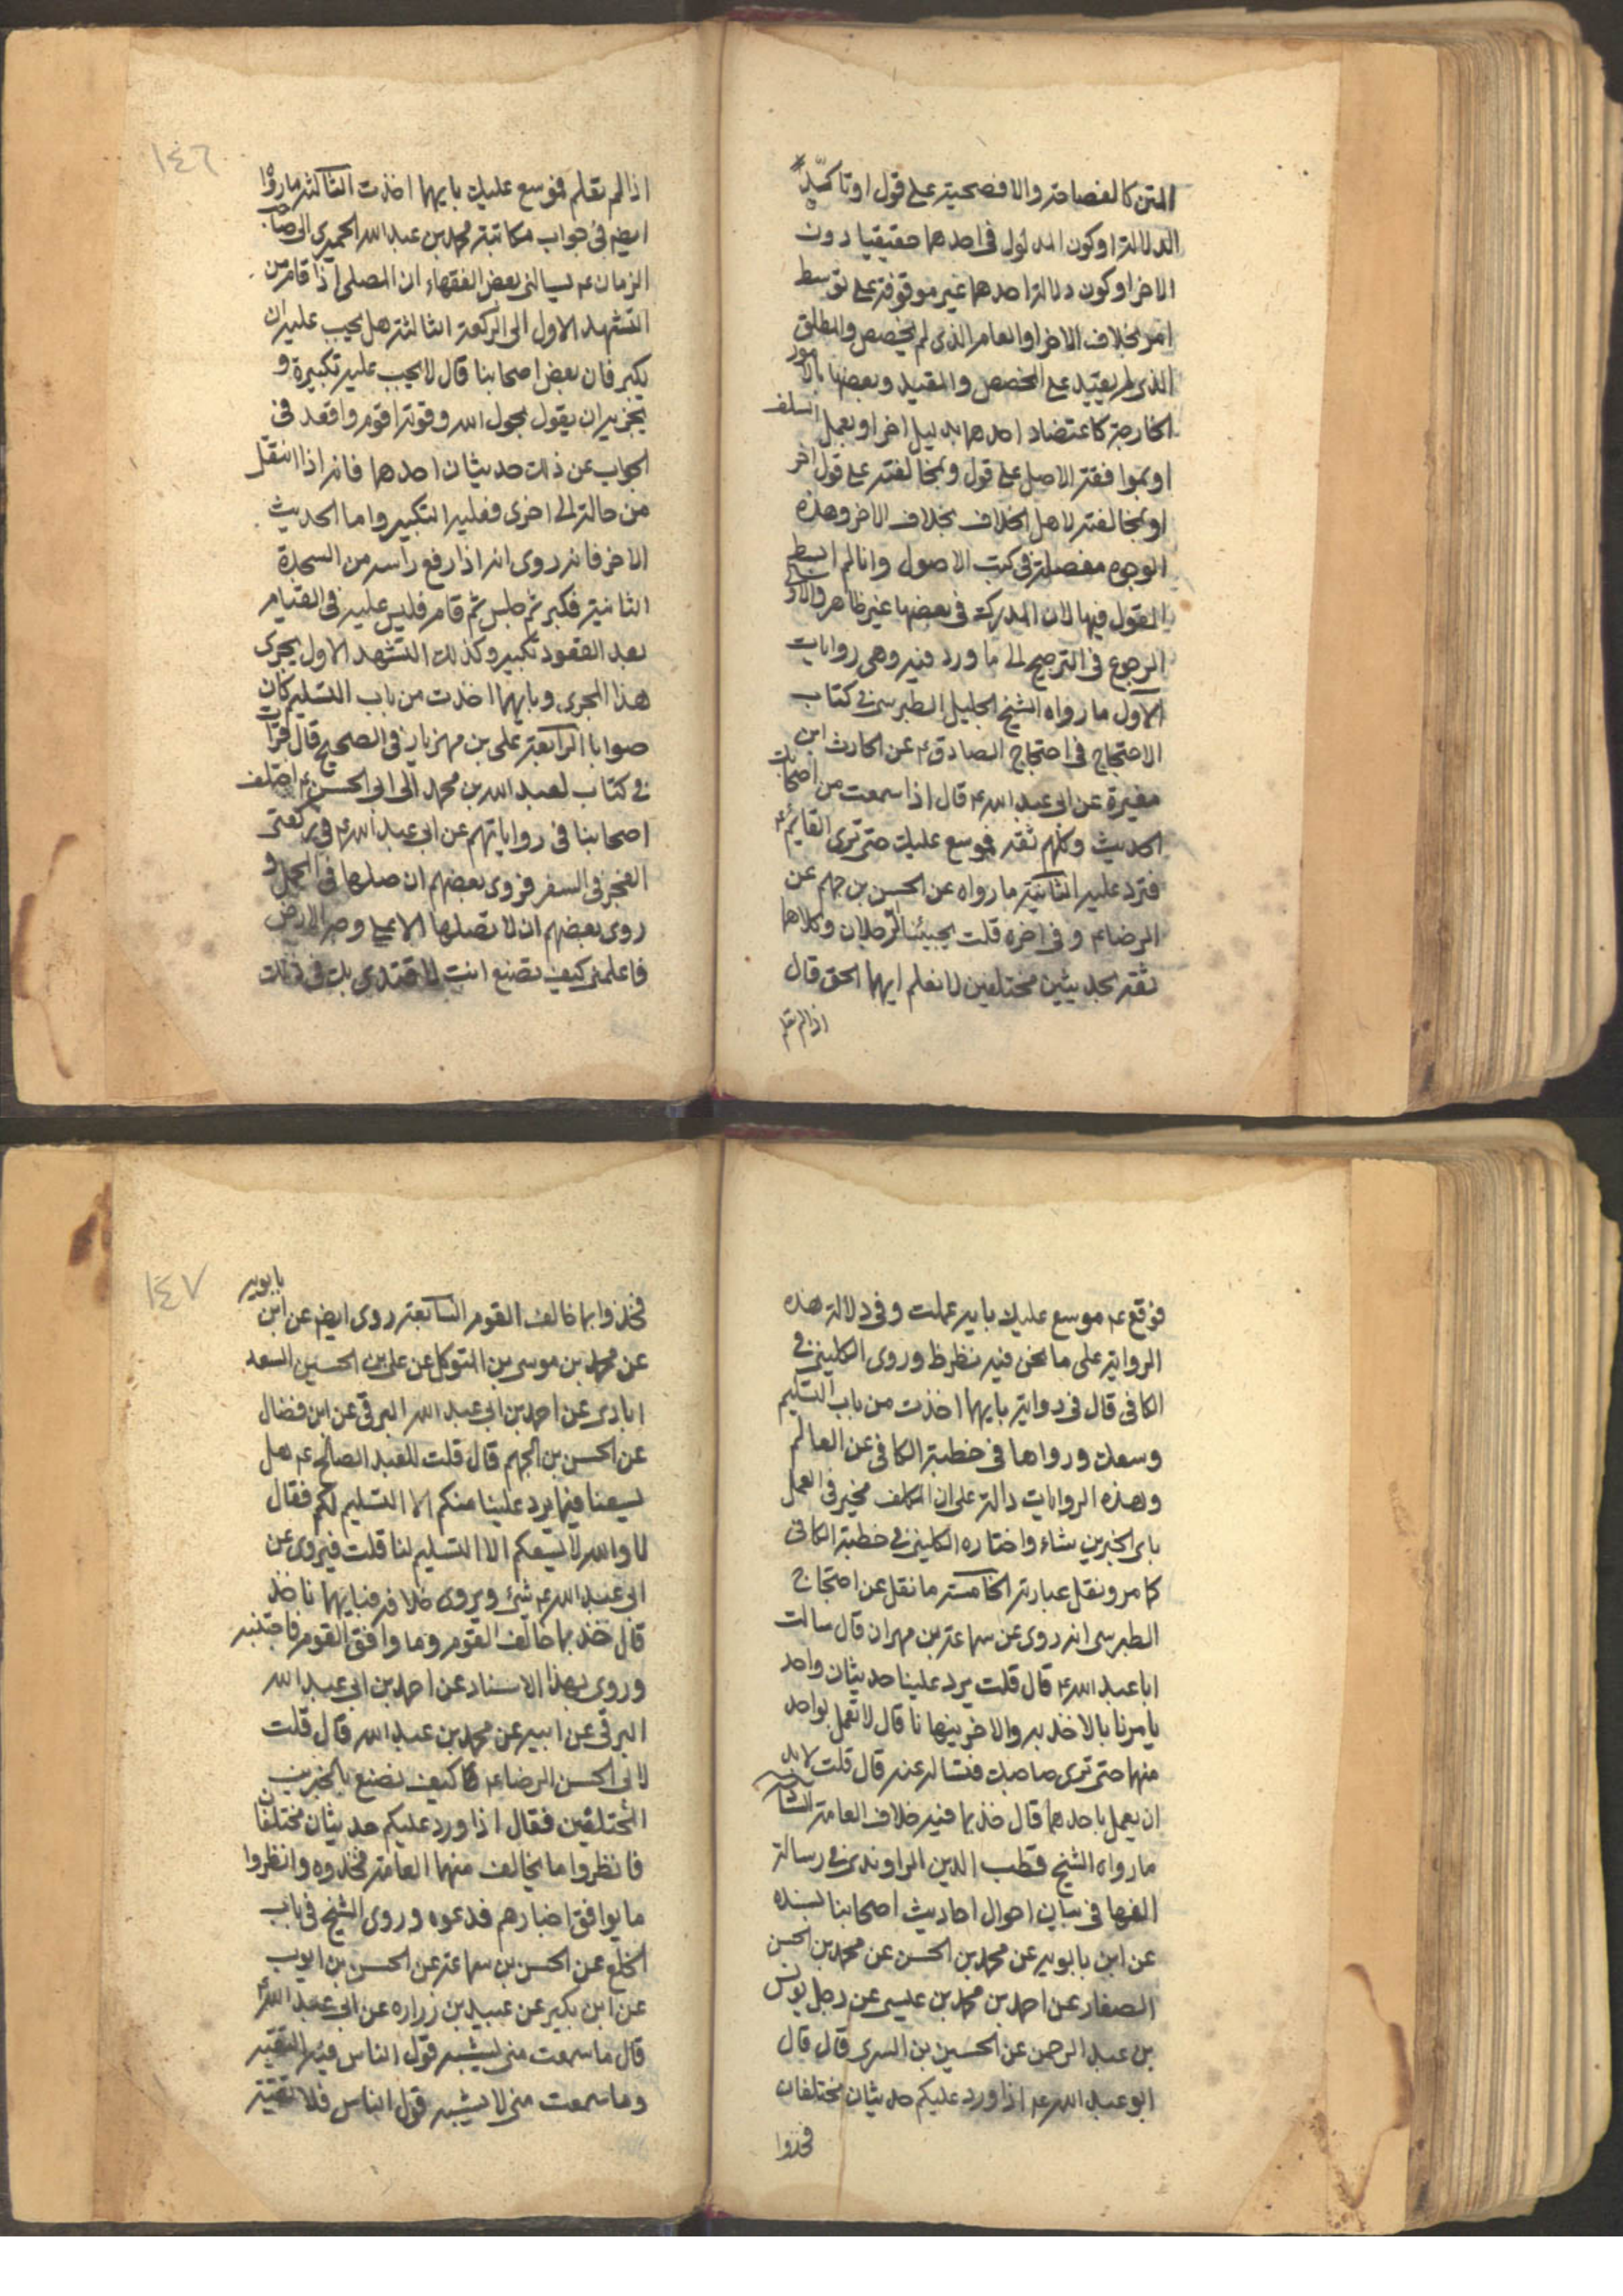 المتن كالفصاحة والافصحية على قول او تاكيد
الدلالة او كون المدلول فى احدهما حقيقيا دون
الاخر او كون دلالة احدهما غير موقوفة على توسط
امر بخلاف الاخر او العام الذى لم يخصص والمطلق
الذى لم يقيد على المخصص والمقيد وبعضها بالامور
الخارجة كاعتضاد احدهما بدليل اخر او بعمل السلف
او بموافقة الاصل على قول وبمخالفته على قول اخر
او بمخالفته لاهل الخلاف بخلاف الاخر وهذه
الوجوه مفصلة فى كتب الاصول وانا لم ابسط
القول فيها لان المدرك فى بعضها غير ظاهر والاولى
الرجوع فى الترجيح الى ما ورد فيه وهى روايات
الاول ما رواه الشيخ الجليل الطبرسى فى كتاب
الاحتجاج فى احتجاج الصادق ع عن الحارث ابن
مغيرة عن ابى عبد الله ع قال اذا سمعت من اصحابك
الحديث وكلهم ثقة فموسع عليك حتى ترى القائم ع
فترد عليه الثانية ما رواه عن الحسن بن جهم عن
الرضا ع وفى اخره قلت يجيئنا الرجلان وكلاهما
ثقة بحديثين مختلفين لا نعلم ايهما الحق قال
اذا لم تعلم
١٤٦
اذا لم تعلم فموسع عليك بايهما اخذت الثالثة ما رواه
ايضم فى جواب مكاتبة محمد بن عبد الله الحميرى الى صاحب
الزمان ع يسالنى بعض الفقهاء ان المصلى اذا قام من
التشهد الاول الى الركعة الثالثة هل يجب عليه ان
يكبر فان بعض اصحابنا قال لا يجب عليه تكبيرة و
يجزيه ان يقول بحول الله وقوته اقوم واقعد فى
الجواب عن ذلك حديثان احدهما فانه اذا انتقل
من حالة الى اخرى فعليه التكبير واما الحديث
الاخر فانه روى انه اذا رفع راسه من السجدة
الثانية فكبر ثم جلس ثم قام فليس عليه فى القيام
بعد القعود تكبير وكذلك التشهد الاول يجرى
هذا المجرى وبايهما اخذت من باب التسليم كان
صوابا الرابعة على بن مهزيار فى الصحيح قال قرات
فى كتاب لعبد الله بن محمد الى ابى الحسن ع اختلف
اصحابنا فى رواياتهم عن ابى عبد الله ع فى ركعتى
الفجر فى السفر فروى بعضهم ان صلها فى المحمل و
روى بعضهم ان لا تصلها الا على وجه الارض
فاعلمنى كيف تصنع انت لاقتدى بك فى ذلك
فوقع ع موسع عليك باية عملت وفى دلالة هذه
الرواية على ما نحن فيه نظر ظ وروى الكلينى فى
الكافى قال فى رواية بايهما اخذت من باب التسليم
وسعك ورواها فى خطبة الكافى عن العالم
وهذه الروايات دالة على ان المكلف مخير فى العمل
باى الخبرين شاء واختاره الكلينى فى خطبة الكافى
كما مر ونقل عبارته الخامسة ما نقل عن احتجاج
الطبرسى انه روى عن سماعة بن مهران قال سالت
ابا عبد الله ع قال قلت يرد علينا حديثان واحد
يامرنا بالاخذ به والاخر ينهانا قال لا تعمل بواحد
منهما حتى ترى صاحبك فتساله عنه قال قلت لابد
ان يعمل باحدهما قال خذ بما فيه خلاف العامة السادسة
ما رواه الشيخ قطب الدين الراوندى فى رسالة
الفها فى بيان احوال احاديث اصحابنا بسنده
عن ابن بابويه عن محمد بن الحسن عن محمد بن الحسن
الصفار عن احمد بن محمد بن عيسى عن رجل يونس
بن عبد الرحمن عن الحسين بن السرى قال قال
ابو عبد الله ع اذا ورد عليكم حديثان مختلفان
فخذوا
١٤٧
فخذوا بما خالف القوم السابعة روى ايضم عن ابن بابويه
عن محمد بن موسى بن المتوكل عن على بن الحسين السعد
ابادى عن احمد بن ابى عبد الله البرقى عن ابن فضال
عن الحسن بن الجهم قال قلت للعبد الصالح ع هل
يسعنا فيما يرد علينا منكم الا التسليم لكم فقال
لا والله لا يسعكم الا التسليم لنا قلت فيروى عن
ابى عبد الله ع شئ ويروى خلافه فبايهما ناخذ
قال خذ بما خالف القوم وما وافق القوم فاجتنبه
وروى بهذا الاسناد عن احمد بن ابى عبد الله
البرقى عن ابيه عن محمد بن عبد الله قال قلت
لابى الحسن الرضا ع كيف نصنع بالخبرين
المختلفين فقال اذا ورد عليكم حديثان مختلفان
فانظروا ما يخالف منهما العامة فخذوه وانظروا
ما يوافق اخبارهم فدعوه وروى الشيخ فى باب
الخلع عن الحسن بن سماعة عن الحسن بن ايوب
عن ابن بكير عن عبيد بن زراره عن ابى عبد الله ع
قال ما سمعت منى يشبه قول الناس فيه التقية
وما سمعت منى لا يشبه قول الناس فلا تقية